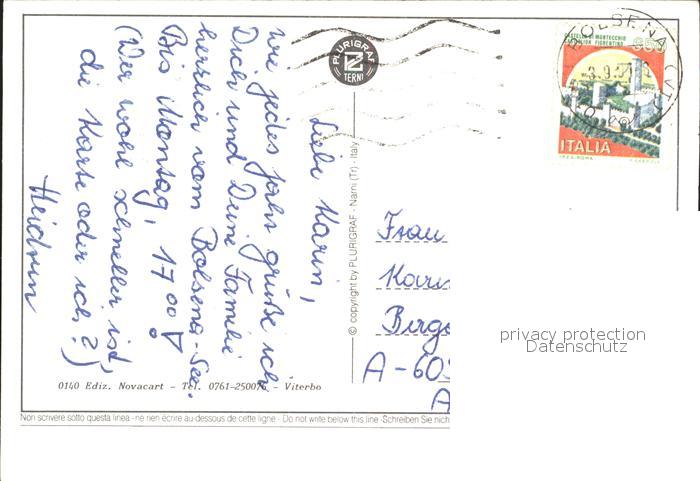 Liebe Karin,
wie jedes Jahr grüße ich
Dich und Deine Familie
herzlich vom Bolsena-See.
Bis Montag, 17 00!
(Wer wohl schneller ist,
die Karte oder ich?)
Heidrun
PLURIGRAF
TERNI
© copyright by PLURIGRAF - Narni (Tr) - Italy
CASTELLO DI MONTECCHIO
CASTIGLION FIORENTINO
650
ITALIA
I.P.Z.S. ROMA
BOLSENA
Frau
Karin
Berg
A-60
A
privacy protection
Datenschutz
0140 Ediz. Novacart - Tel. 0761-250076 - Viterbo
Non scrivere sotto questa linea - ne rien écrire au-dessous de cette ligne - Do not write below this line - Schreiben Sie nich